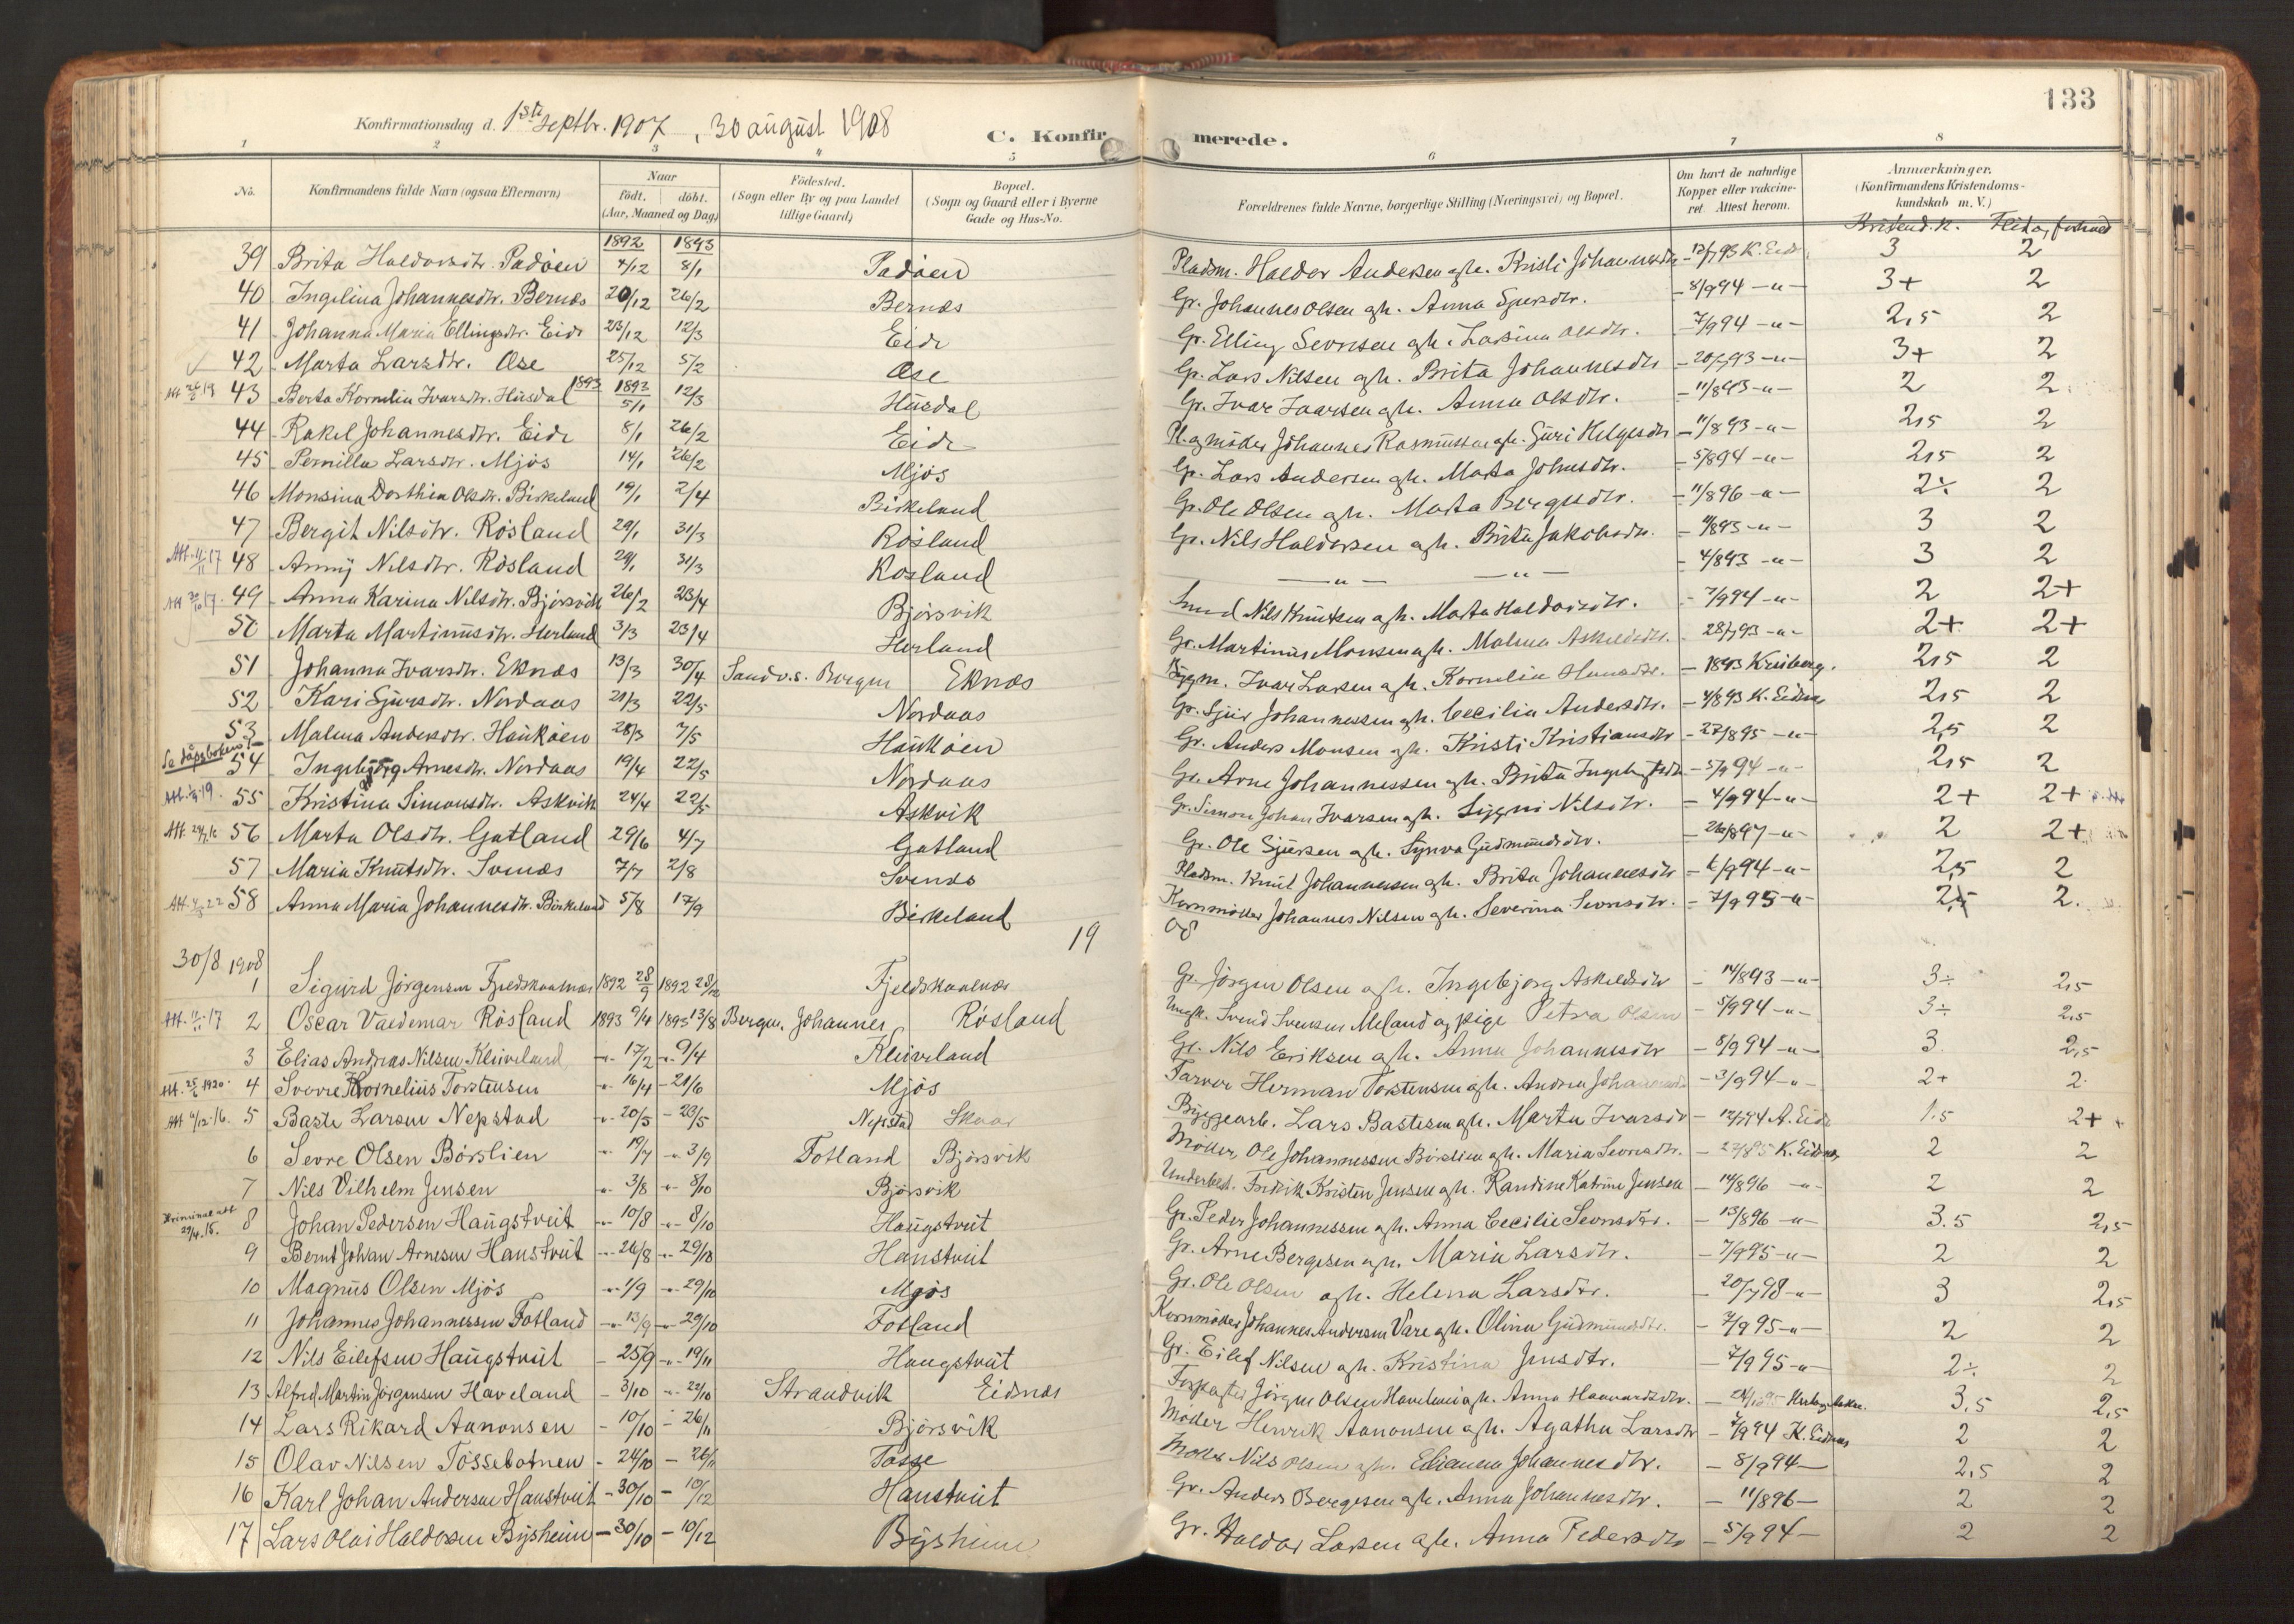 133
Konfirmationsdag d. 1ste Septbr. 1907, 30 august 1908
C. Konfirmerede.
1 2 3 4 5 6 7 8
No. Konfirmandens fulde Navn (ogsaa Efternavn) Naar født. døbt. (Aar, Maaned og Dag) Fødested. (Sogn eller By og paa Landet tillige Gaard) Bopæl. (Sogn og Gaard eller i Byerne Gade og Hus-No. Forældrenes fulde Navne, borgerlige Stilling (Næringsvei) og Bopæl. Om havt de naturlige Kopper eller vaccineret. Attest herom. Anmærkninger. (Konfirmandens Kristendomskundskab m. V.)
Kristend.k. Flid og forhold
1892 1893
39 Brita Haldorsdtr. Padøen 4/12 8/1 Padøen Pladsm. Haldor Andersen og h. Kristi Johannesdtr 3 2
40 Ingelina Johannesdtr. Bernæs 20/12 26/2 Bernæs Gr. Johannes Olsen og h. Anna Sjursdtr. – 8/9 94 –"– 3+ 2
41 Johanna Maria Ellingsdtr. Eide 23/12 12/3 Eide Gr. Elling Sevresen og h. Larsina Olsdtr. – 7/9 94 –"– 2,5 2
42 Marta Larsdtr. Øse 25/12 5/2 Øse Gr. Lars Nilsen og h. Brita Johannesdtr – 20/9 93 –"– 3+ 2
43 Berta Kornelia Ivarsdtr. Husdal 1893 1893 5/1 12/3 Husdal Gr. Ivar Ivarsen og h. Anna Olsdtr. – 11/8 93 –"– 2 2
44 Rakel Johannesdtr. Eide 8/1 26/2 Eide Pl. og møller Johannes Rasmussen og h. Guri Helgesdtr – 11/8 93 –"– 2,5 2
45 Pernilla Larsdtr. Mjøs 14/1 26/2 Mjøs Gr. Lars Andersen og h. Marta Johnsdtr. – 5/8 94 –"– 2,5 2
46 Monsina Dorthea Olsdtr. Birkeland 19/1 2/4 Birkeland Gr. Ole Olsen og h. Marta Bergesdtr. – 11/8 96 –"– 2÷ 2
47 Bergit Nilsdtr. Røsland 29/1 31/3 Røsland Gr. Nils Haldorsen og h. Brita Jakobsdtr. – 4/8 93 –"– 3 2
Att. 11/11 17 48 Anny Nilsdtr. Røsland 29/1 31/3 Røsland –"– –"– – 4/8 93 –"– 3 2
49 Anna Karina Nilsdtr. Bjørsvik 26/2 23/4 Bjørsvik Smed Nils Knutsen og h. Marta Haldorsdtr. – 7/9 94 –"– 2 2+
50 Marta Martinusdtr. Herland 3/3 23/4 Herland Gr. Martinus Monsen og h. Malena Askeldsdtr. – 28/9 93 –"– 2+ 2+
51 Johanna Ivarsdtr. Eknæs 13/3 30/4 Sandv.s. Bergen Eknæs Bygm. Ivar Larsen og h. Kornelia Hansdtr. – 1893 2,5 2
52 Kari Sjursdtr. Nordaas 21/3 22/5 Nordaas Gr. Sjur Johannessen og h. Cecilia Andersdtr. – 4/8 93 K. Eidnes 2,5 2
53 Malena Andersdtr. Haukøen 28/3 7/5 Haukøen Gr. Anders Monsen og h. Kristi Kristiansdtr – 27/8 95 –"– 2,5 2
Se dåpsboken 54 Ingebjørg Arnesdtr. Nordaas 19/4 22/5 Nordaas Gr. Arne Johannessen og h. Brita – 5/9 94 –"– 2,5 2
55 Kristina Simonsdtr. Askvik 24/4 22/5 Askvik Gr. Simon Johan Ivarsen og h. Sygni Nilsdtr. – 4/9 94 –"– 2+ 2+
56 Marta Olsdtr. Gatland 29/6 4/7 Gatland Gr. Ole Sjursen og h. Synva Gudmundsdtr. – 26/8 97 –"– 2 2+
57 Maria Knutsdtr. Svenæs 7/7 2/8 Svenæs Pladsm. Knut Johannessen og h. Brita Johannesdtr – 6/9 94 –"– 2,5 2
58 Anna Maria Johannesdtr. Birkeland 5/8 17/9 Birkeland Kornmøller Johannes Nilsen og h. Severina Sevresdtr. – 7/9 95 –"– 2,5 2.
30/8 1908 19 08
1 Sigurd Jørgensen Fjeldskaalnæs 1892 28/9 1892 Fjeldskaalnæs Gr. Jørgen Olsen og h. Ingebjørg Askeldsdtr – 14/8 93 –"– 3÷ 2,5
Att. 11/11 17 2 Oscar Valdemar Røsland 1893 9/4 1893 13/8 Bergen, Johannes Røsland Ungk. Svend Svensen Meland og pige Petra Olsen – 5/9 94 –"– 3÷ 2,5
3 Elias Andreas Nilsen Kleiveland –"– 17/2 –"– 9/4 Kleiveland Gr. Nils Eriksen og h. Anna Johannesdtr – 8/9 94 –"– 3 2,5
Att. 25/2 1920. 4 Sverre Kornelius Torstensen –"– 16/4 – 21/6 Mjøs Farver Herman Torstensen og h. Andrea – 3/9 94 –"– 2+ 2
Att 6/12 16. 5 Baste Larsen Nepstad –"– 20/3 – 23/5 Nepstad Skaar Byggearb. Lars Bastesen og h. Marta Ivarsdtr – 12/9 94 A. Eide 1.5 2+
6 Sevre Olsen Børslien –"– 19/7 –"– 3/9 Fotland Bjørsvik Møller Ole Johannessen Børslien og h. Maria Sevresdtr. – K. Eidnes 2 2
7 Nils Vilhelm Jensen –"– 3/8 –"– 8/10 Bjørsvik Fredrik Kristen Jensen og h. Randine Katrine Jensen – 14/8 96 –"– 2 2
Kriminalatt 29/4. 15. 8 Johan Pedersen Haugstveit –"– 10/8 –"– 8/10 Haugstveit Gr. Peder Johannessen og h. Anna Cecilie Sevresdtr. – 13/8 96 –"– 3.5 2,5
9 Bernt Johan Arnesen Hanstveit –"– 26/8 –"– 29/10 Hanstveit Gr. Arne Bergesen og h. Maria Larsdtr. – 7/9 95 –"– 2 2
10 Magnus Olsen Mjøs –"– 1/9 –"– 29/10 Mjøs Gr. Ole Olsen og h. Helena Larsdtr. – 20/9 98 –"– 3 2,5
11 Johannes Johannessen Fotland –"– 13/9 –"– 29/10 Fotland Kornmøller Johannes Andersen Vare og h. Olina Gudmundsdtr. – 7/9 95 –"– 2 2
12 Nils Eilefsen Haugstveit – 25/9 –"– 19/11 Haugstveit Gr. Eilef Nilsen og h. Kristina Jensdtr. – 7/9 95 –"– 2÷ 2
13 Alfred Martin Jørgensen Haveland – 3/10 –"– 22/10 Strandvik Eidnes Forpagter Jørgen Olsen Haveland og h. Anna 3.5 2,5
14 Lars Rikard Aanonsen – 10/10 – 26/11 Bjørsvik Møller Henrik Aanonsen og h. Agatha Larsdtr – 7/9 94 K. Eidnes 2 2
15 Olav Nilsen Tøssebotnen – 24/10 – 26/11 Tøsse Møller Nils Olsen og h. Johannesdtr. – 8/9 94 – 2,5 2
16 Karl Johan Andersen Hanstveit – 30/10 – 10/12 Hanstveit Gr. Anders Bergesen og h. Anna Johannesdtr. – 11/8 96 – 2 2
17 Lars Olai Haldorsen Bysheim – 30/10 – 10/12 Bysheim Gr. Haldor Larsen og h. Anna Pedersdtr – 5/9 94 – 2 2